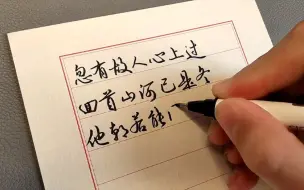 忽有故人心上过
回首山河已是冬
他朝若能